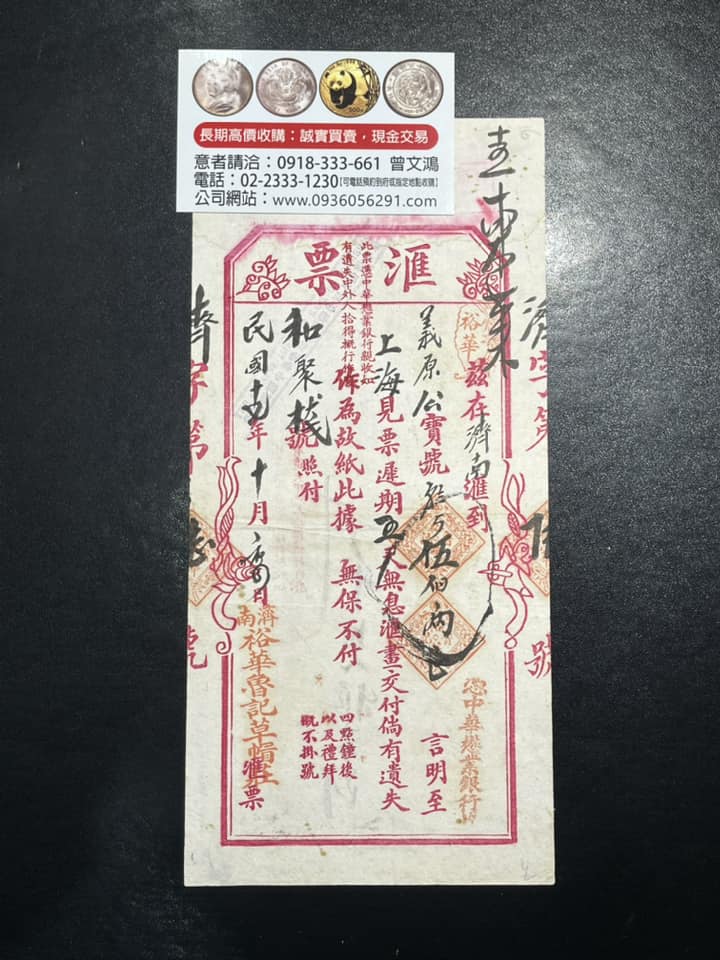 長期高價收購：誠實買賣，現金交易
意者請洽：0918-333-661 曾文鴻
電話：02-2333-1230【可電話預約到府或指定地點收購】
公司網站：www.0936056291.com
滙票
此票憑中華懋業銀行親收如
有遺失中外人拾得概行
裕華
茲在濟南滙到
義原公寶號 伍佰兩
言明至
上海見票遲期五天無息滙畫交付倘有遺失
作為故紙此據 無保不付
和聚棧號照付
四點鐘後
以及禮拜
概不掛號
民國十五年十月 日
濟南裕華魯記草帽莊滙票
憑中華懋業銀行
濟字第
號
字第
號